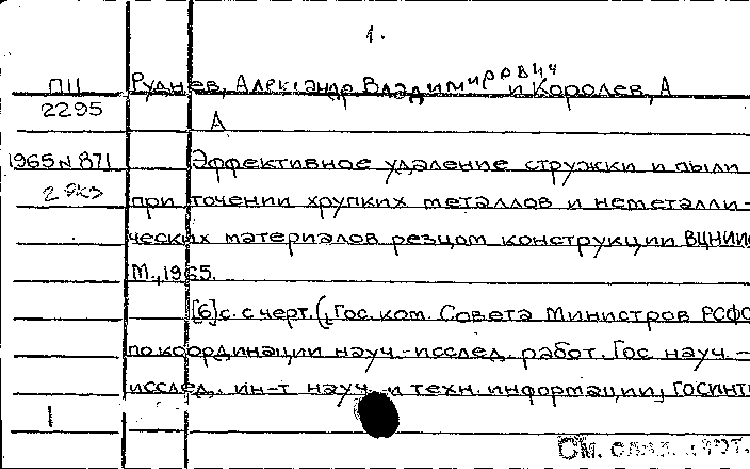 1.
П11 Руднев, Александр Владимирович и Королев, А
2295 А
1965 N 871 Эффективное удаление стружки и пыли
2 экз при точении хрупких металлов и неметалли-
ческих материалов резцом конструкции ВЦНИИ
М., 1965.
[6] с. с черт. („Гос. ком. Совета Министров РСФС
по координации науч.-исслед. работ. Гос науч.-
исслед. ин-т науч. и техн. информации, ГОСИНТИ
1
См. след.